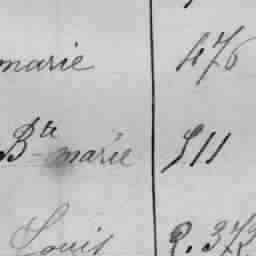 marie 476
Bte marie 511
Louis 2.373